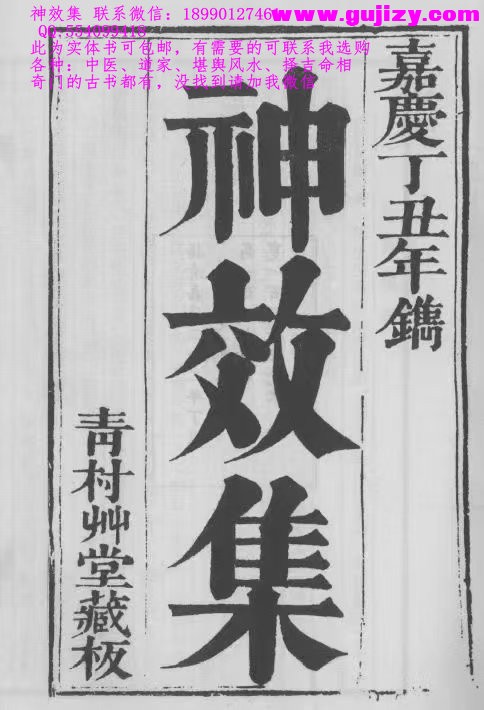 神效集 联系微信：1899012746
www.gujizy.com
此为实体书可包邮，有需要的可联系我选购
各种：中医、道家、堪舆风水、择吉命相
奇门的古书都有，没找到请加我微信
嘉慶丁丑年鐫
神效集
青村艸堂藏板